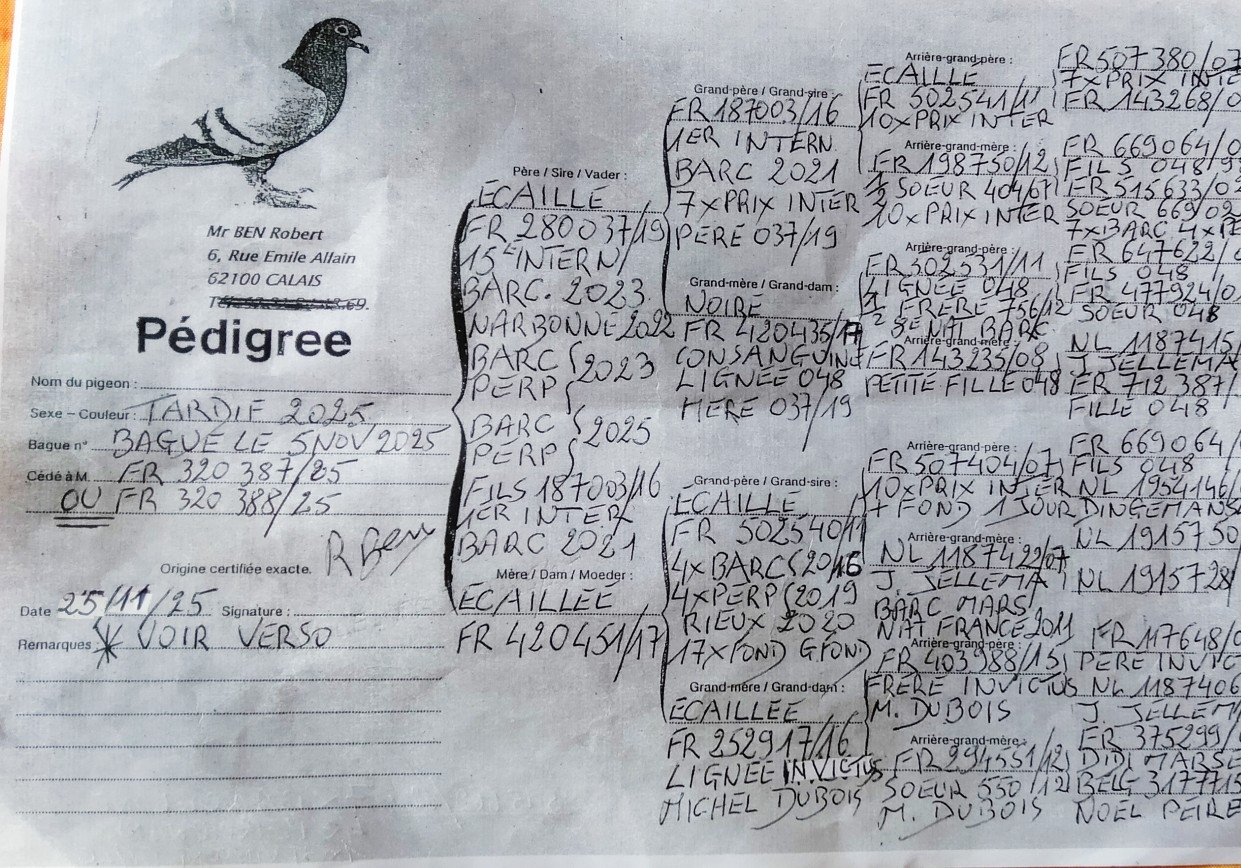 Mr BEN Robert
6, Rue Emile Allain
62100 CALAIS
Pédigree
Nom du pigeon :
Sexe – Couleur : TARDIF 2025
Bague n° BAGUE LE 5 NOV 2025
Cédé à M. FR 320 387/25
OU FR 320 388/25
Origine certifiée exacte. R Ben
Date 25/11/25 Signature :
Remarques * VOIR VERSO
Père / Sire / Vader :
ECAILLE
FR 280037/19
15E INTERN/
BARC. 2023
NARBONNE 2022
BARC 2023
PERP
BARC 2025
PERP
FILS 187003/16
1ER INTER
BARC 2021
Mère / Dam / Moeder :
ECAILLEE
FR 420451/17
Grand-père / Grand-sire :
FR 187003/16
1ER INTERN.
BARC 2021
7 x PRIX INTER
PERE 037/19
Grand-mère / Grand-dam :
NOIRE
FR 420435/17
CONSANGUINE
LIGNÉE 048
MERE 037/19
Grand-père / Grand-sire :
ECAILLE
FR 502540/11
4x BARC (2016
4x PERP (2019
RIEUX 2020
17x FOND G.FOND
Grand-mère / Grand-dam :
ECAILLEE
FR 252917/16
LIGNEE INVICTUS
MICHEL DUBOIS
Arrière-grand-père :
ECAILLE
FR 502541/11
10x PRIX INTER
Arrière-grand-mère :
FR 198750/12
½ SOEUR 404/67
10x PRIX INTER
Arrière-grand-père :
FR 502531/11
LIGNÉE 048
½ FRERE 756/12
3E NAT BARC
Arrière-grand-mère :
FR 143235/08
PETITE FILLE 048
Arrière-grand-père :
FR 507404/07
10x PRIX INTER
+ FOND 1 JOUR
Arrière-grand-mère :
NL 1187422/07
J. JELLEMA
BARC MARS
NAT FRANCE 2011
Arrière-grand-père :
FR 403988/15
FRERE INVICTUS
M. DUBOIS
Arrière-grand-mère :
FR 294551/12
SOEUR 550/12
M. DUBOIS
FR 507380/07
7x PRIX INTE
FR 143268/0
FR 669064/0
FILS 048/9
FR 515633/0
SOEUR 669/09
7x BARC 4xPE
FR 647622/0
FILS 048
FR 477924/0
SOEUR 048
NL 1187415/
J. JELLEMA
FR 712387/
FILLE 048
FR 669064/
FILS 048
NL 1954146/
DINGEMANS
NL 1915750
NL 1915728/
FR 117648/0
PERE INVIC
NL 1187406
J. JELLEM
FR 375299/
DIDI MARSE
BELG 3177715
NOEL PEIRE